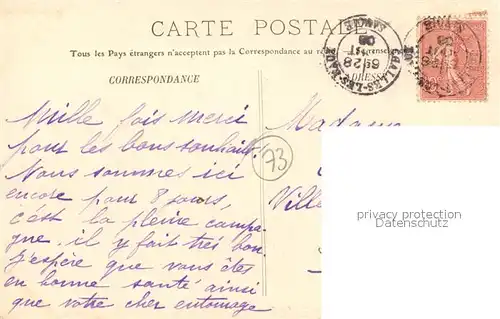 CARTE POSTALE
Tous les Pays étrangers n'acceptent pas la Correspondance au
CORRESPONDANCE
ADRESSE
Mille fois merci
pour les bons souhaits.
Nous sommes ici
encore pour 8 jours,
c'est la pleine campa-
gne. il y fait très bon
J'espère que vous êtes
en bonne santé ainsi
que votre cher entourage
Madame
Ville
73
CHALLES-LES-EAUX
SAVOIE
privacy protection
Datenschutz